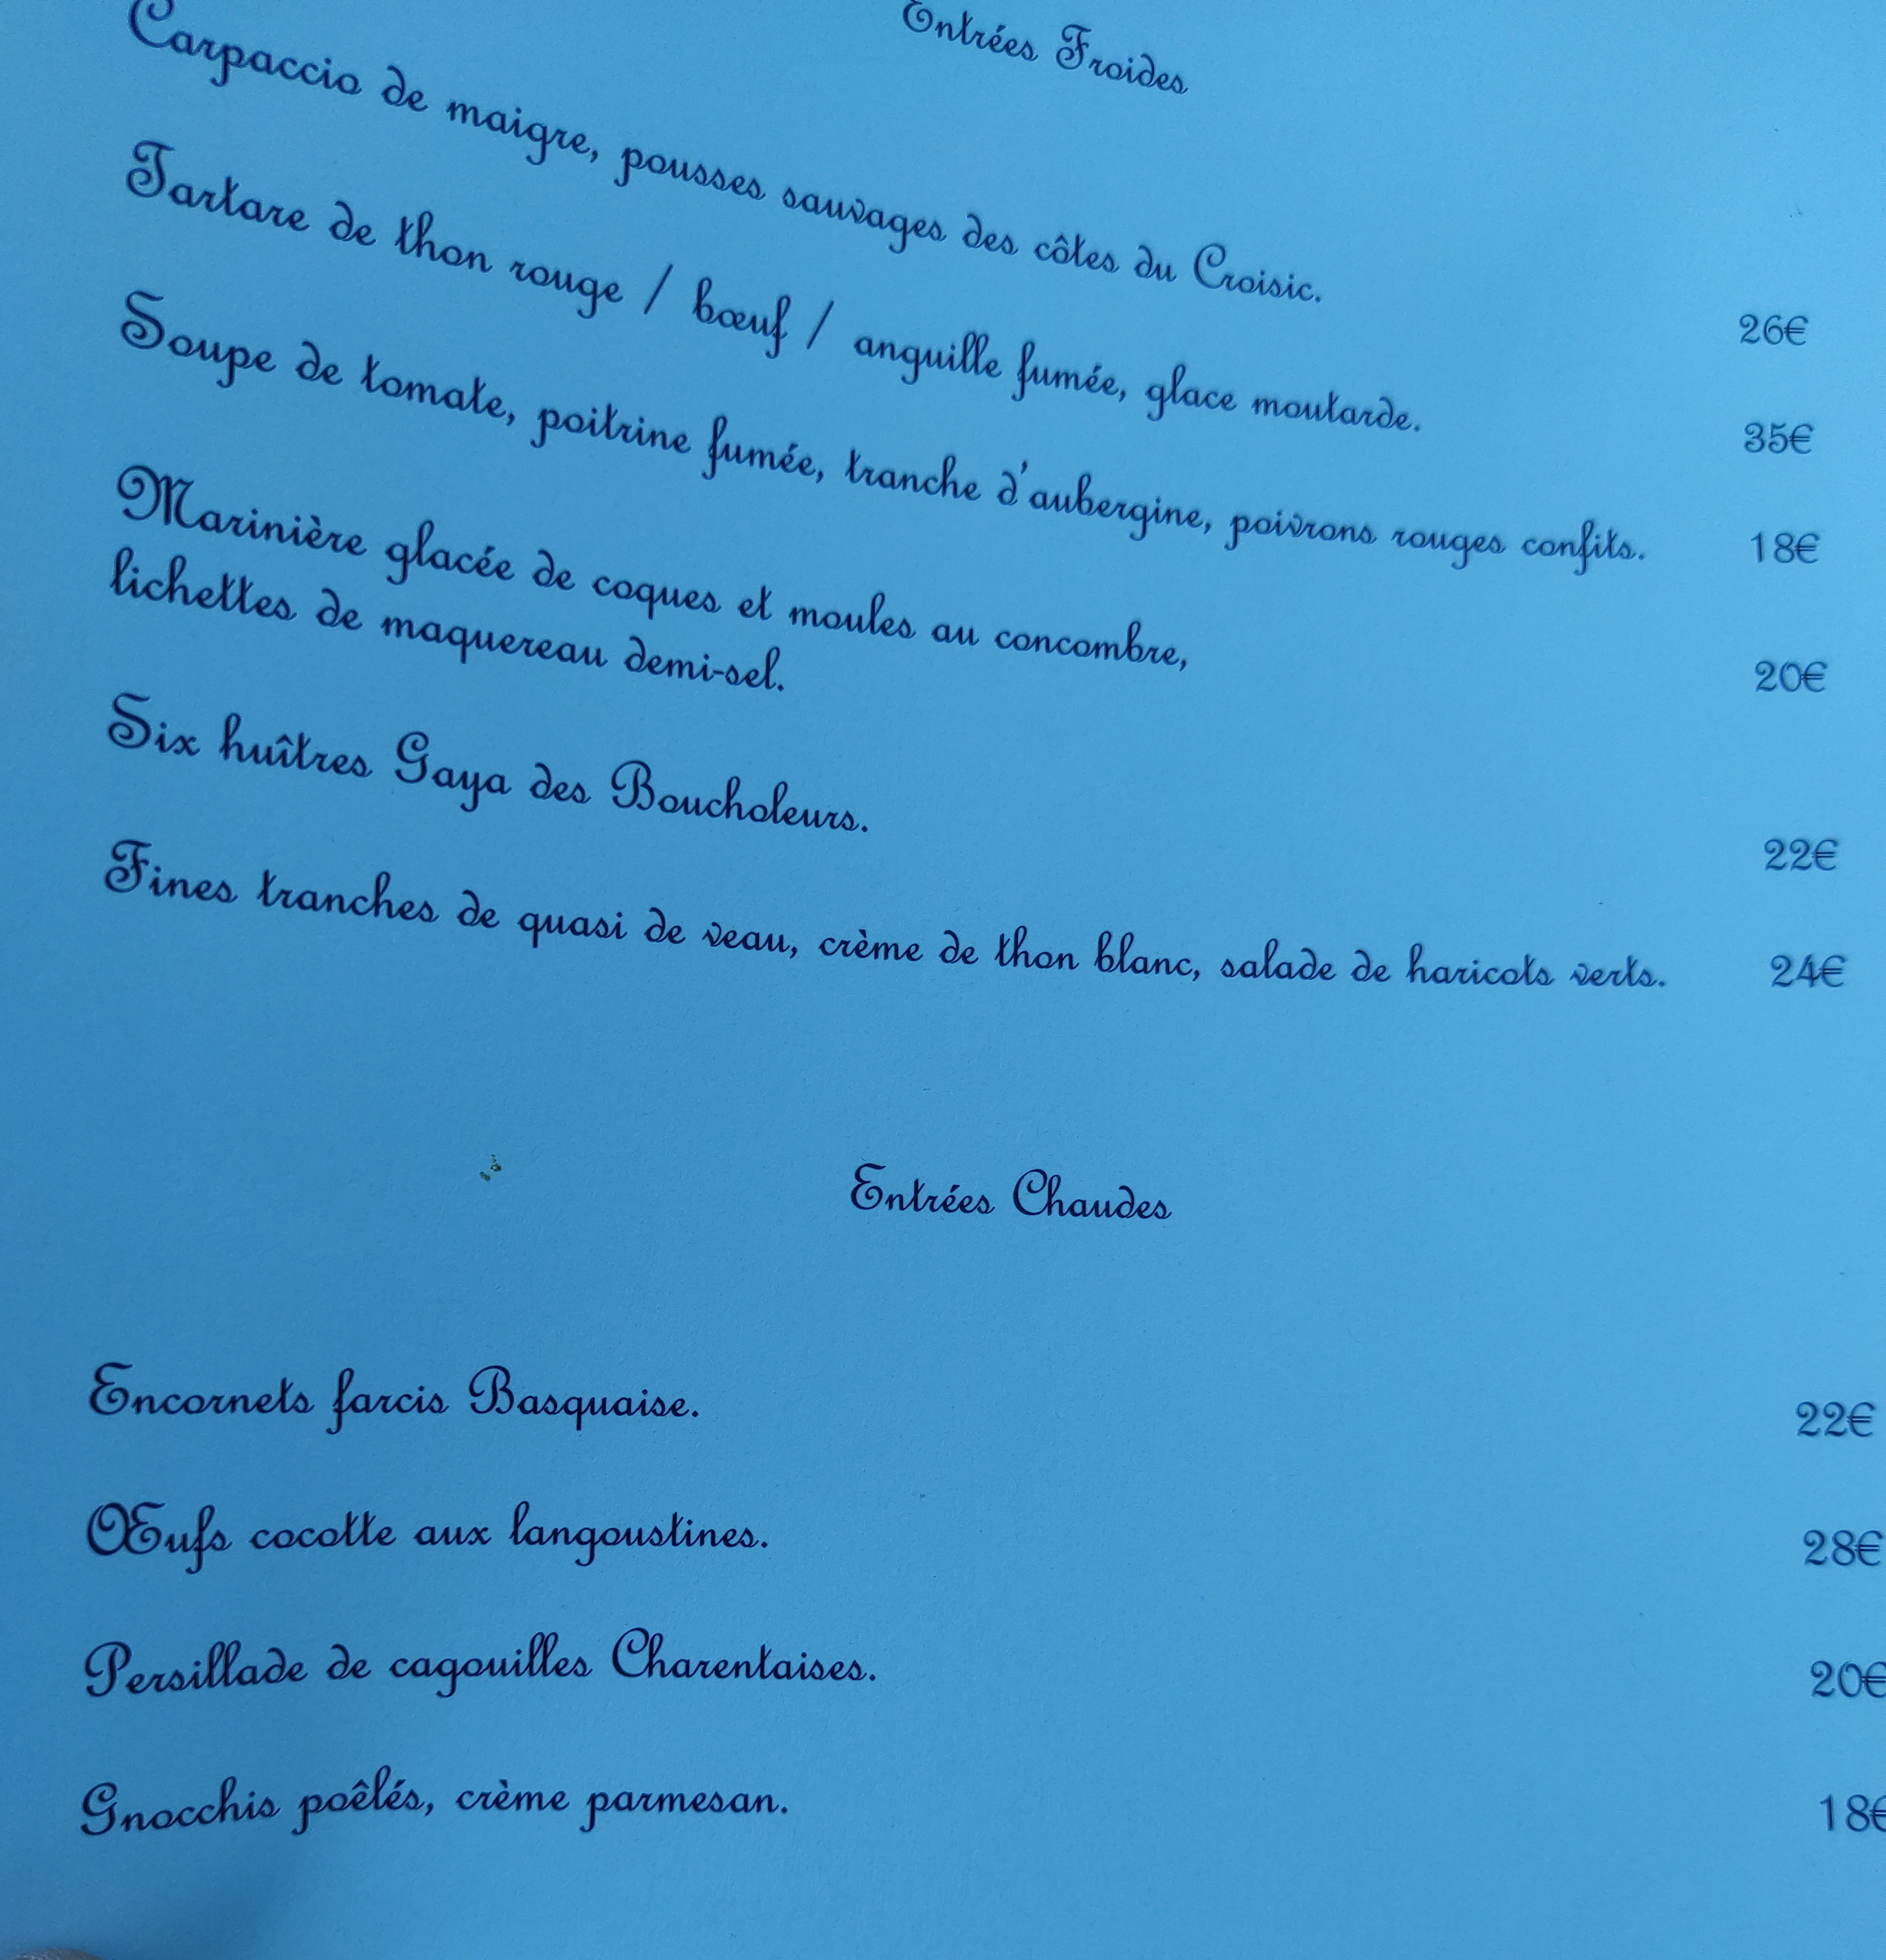 Entrées Froides
Carpaccio de maigre, pousses sauvages des côtes du Croisic. 26€
Tartare de thon rouge / bœuf / anguille fumée, glace moutarde. 35€
Soupe de tomate, poitrine fumée, tranche d'aubergine, poivrons rouges confits. 18€
Marinière glacée de coques et moules au concombre, 20€
lichettes de maquereau demi-sel.
Six huîtres Gaya des Boucholeurs. 22€
Fines tranches de quasi de veau, crème de thon blanc, salade de haricots verts. 24€
Entrées Chaudes
Encornets farcis Basquaise. 22€
Œufs cocotte aux langoustines. 28€
Persillade de cagouilles Charentaises. 20€
Gnocchis poêlés, crème parmesan. 18€